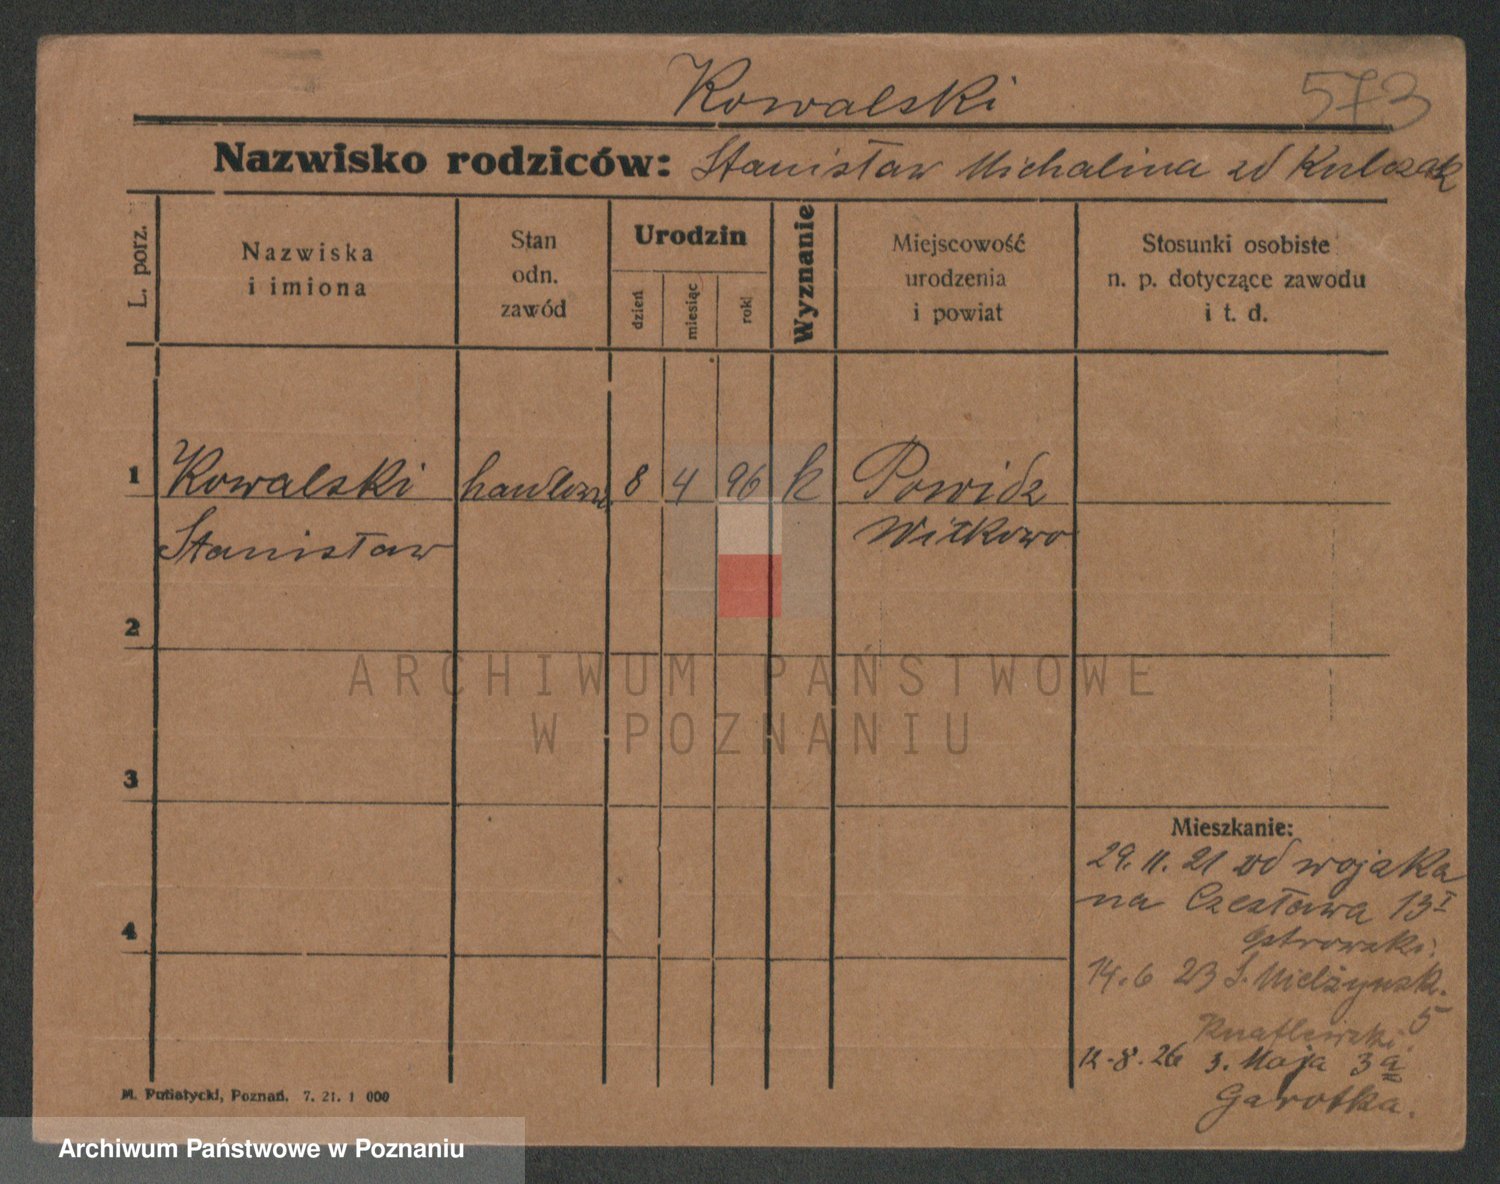 Kowalski
573
Nazwisko rodziców: Stanisław Michalina zd Kulczak
L. porz.
Nazwiska
i imiona
Stan
odn.
zawód
Urodzin
dzień
miesiąc
rok
Wyznanie
Miejscowość
urodzenia
i powiat
Stosunki osobiste
n. p. dotyczące zawodu
i t. d.
1 Kowalski 8 4 96 k Powidz
Stanisław Witkowo
2
3
4
Mieszkanie:
29. 11. 21 od wojska
na Czesława 13 I
Ostrowski.
14. 6 23 S. Mielżyńsk.
5
12-8. 26 3. Maja 3a
Garotka.
M. Putiatycki, Poznań. 7. 21. 1 000
ARCHIWUM PAŃSTWOWE
W POZNANIU
Archiwum Państwowe w Poznaniu